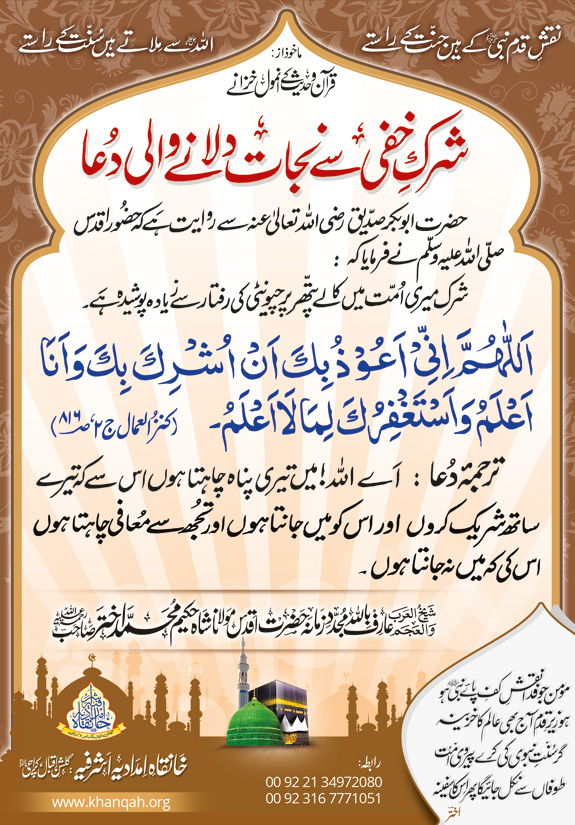 نقشِ قدم نبی ﷺ کے ہیں جنّت کے راستے
اللہ سے ملاتے ہیں سُنّت کے راستے
ماخوذ از:
قرآن و حدیث کے انمول خزانے
شرکِ خفی سے نجات دلانے والی دُعا
حضرت ابوبکر صدّیق رضی اللہ تعالیٰ عنہ سے روایت ہے کہ حضورِ اقدس
صلّی اللہ علیہ وسلّم نے فرمایا کہ :
شرک میری اُمّت میں کالے پتّھر پر چیونٹی کی رفتار سے زیادہ پوشیدہ ہے۔
اَللّٰهُمَّ اِنِّیْۤ اَعُوْذُ بِكَ اَنْ اُشْرِكَ بِكَ وَاَنَا
اَعْلَمُ وَاَسْتَغْفِرُكَ لِمَا لَا اَعْلَمُ۔ (کنزُ العمال ج ۲، صـ ۸۱۶)
ترجمۂ دُعا : اَے اللہ! میں تیری پناہ چاہتا ہوں اس سے کہ تیرے
ساتھ شریک کروں اور اس کو میں جانتا ہوں اور تجُھ سے مُعافی چاہتا ہوں
اس کی کہ میں نہ جانتا ہوں۔
شیخُ العَرب وَالعَجم عارف باللہ مُجدّدِ زمانہ حضرت اقدس مولانا شاہ حکیم مُحمّد اختر صاحب
مؤمن جو فدا نقشِ کفِ پائے نبی ہو
ہو زیرِ قدم آج بھی عالَم کا خزینہ
گر سُنّتِ نبوی کی کرے پیروی اُمّت
طوفاں سے نکل جائیگا پھر اس کا سفینہ
اختر
خانقاہ امدادیہ اشرفیہ: گلشنِ اقبال، کراچی
www.khanqah.org
رابطہ:
00 92 21 34972080
00 92 316 7771051